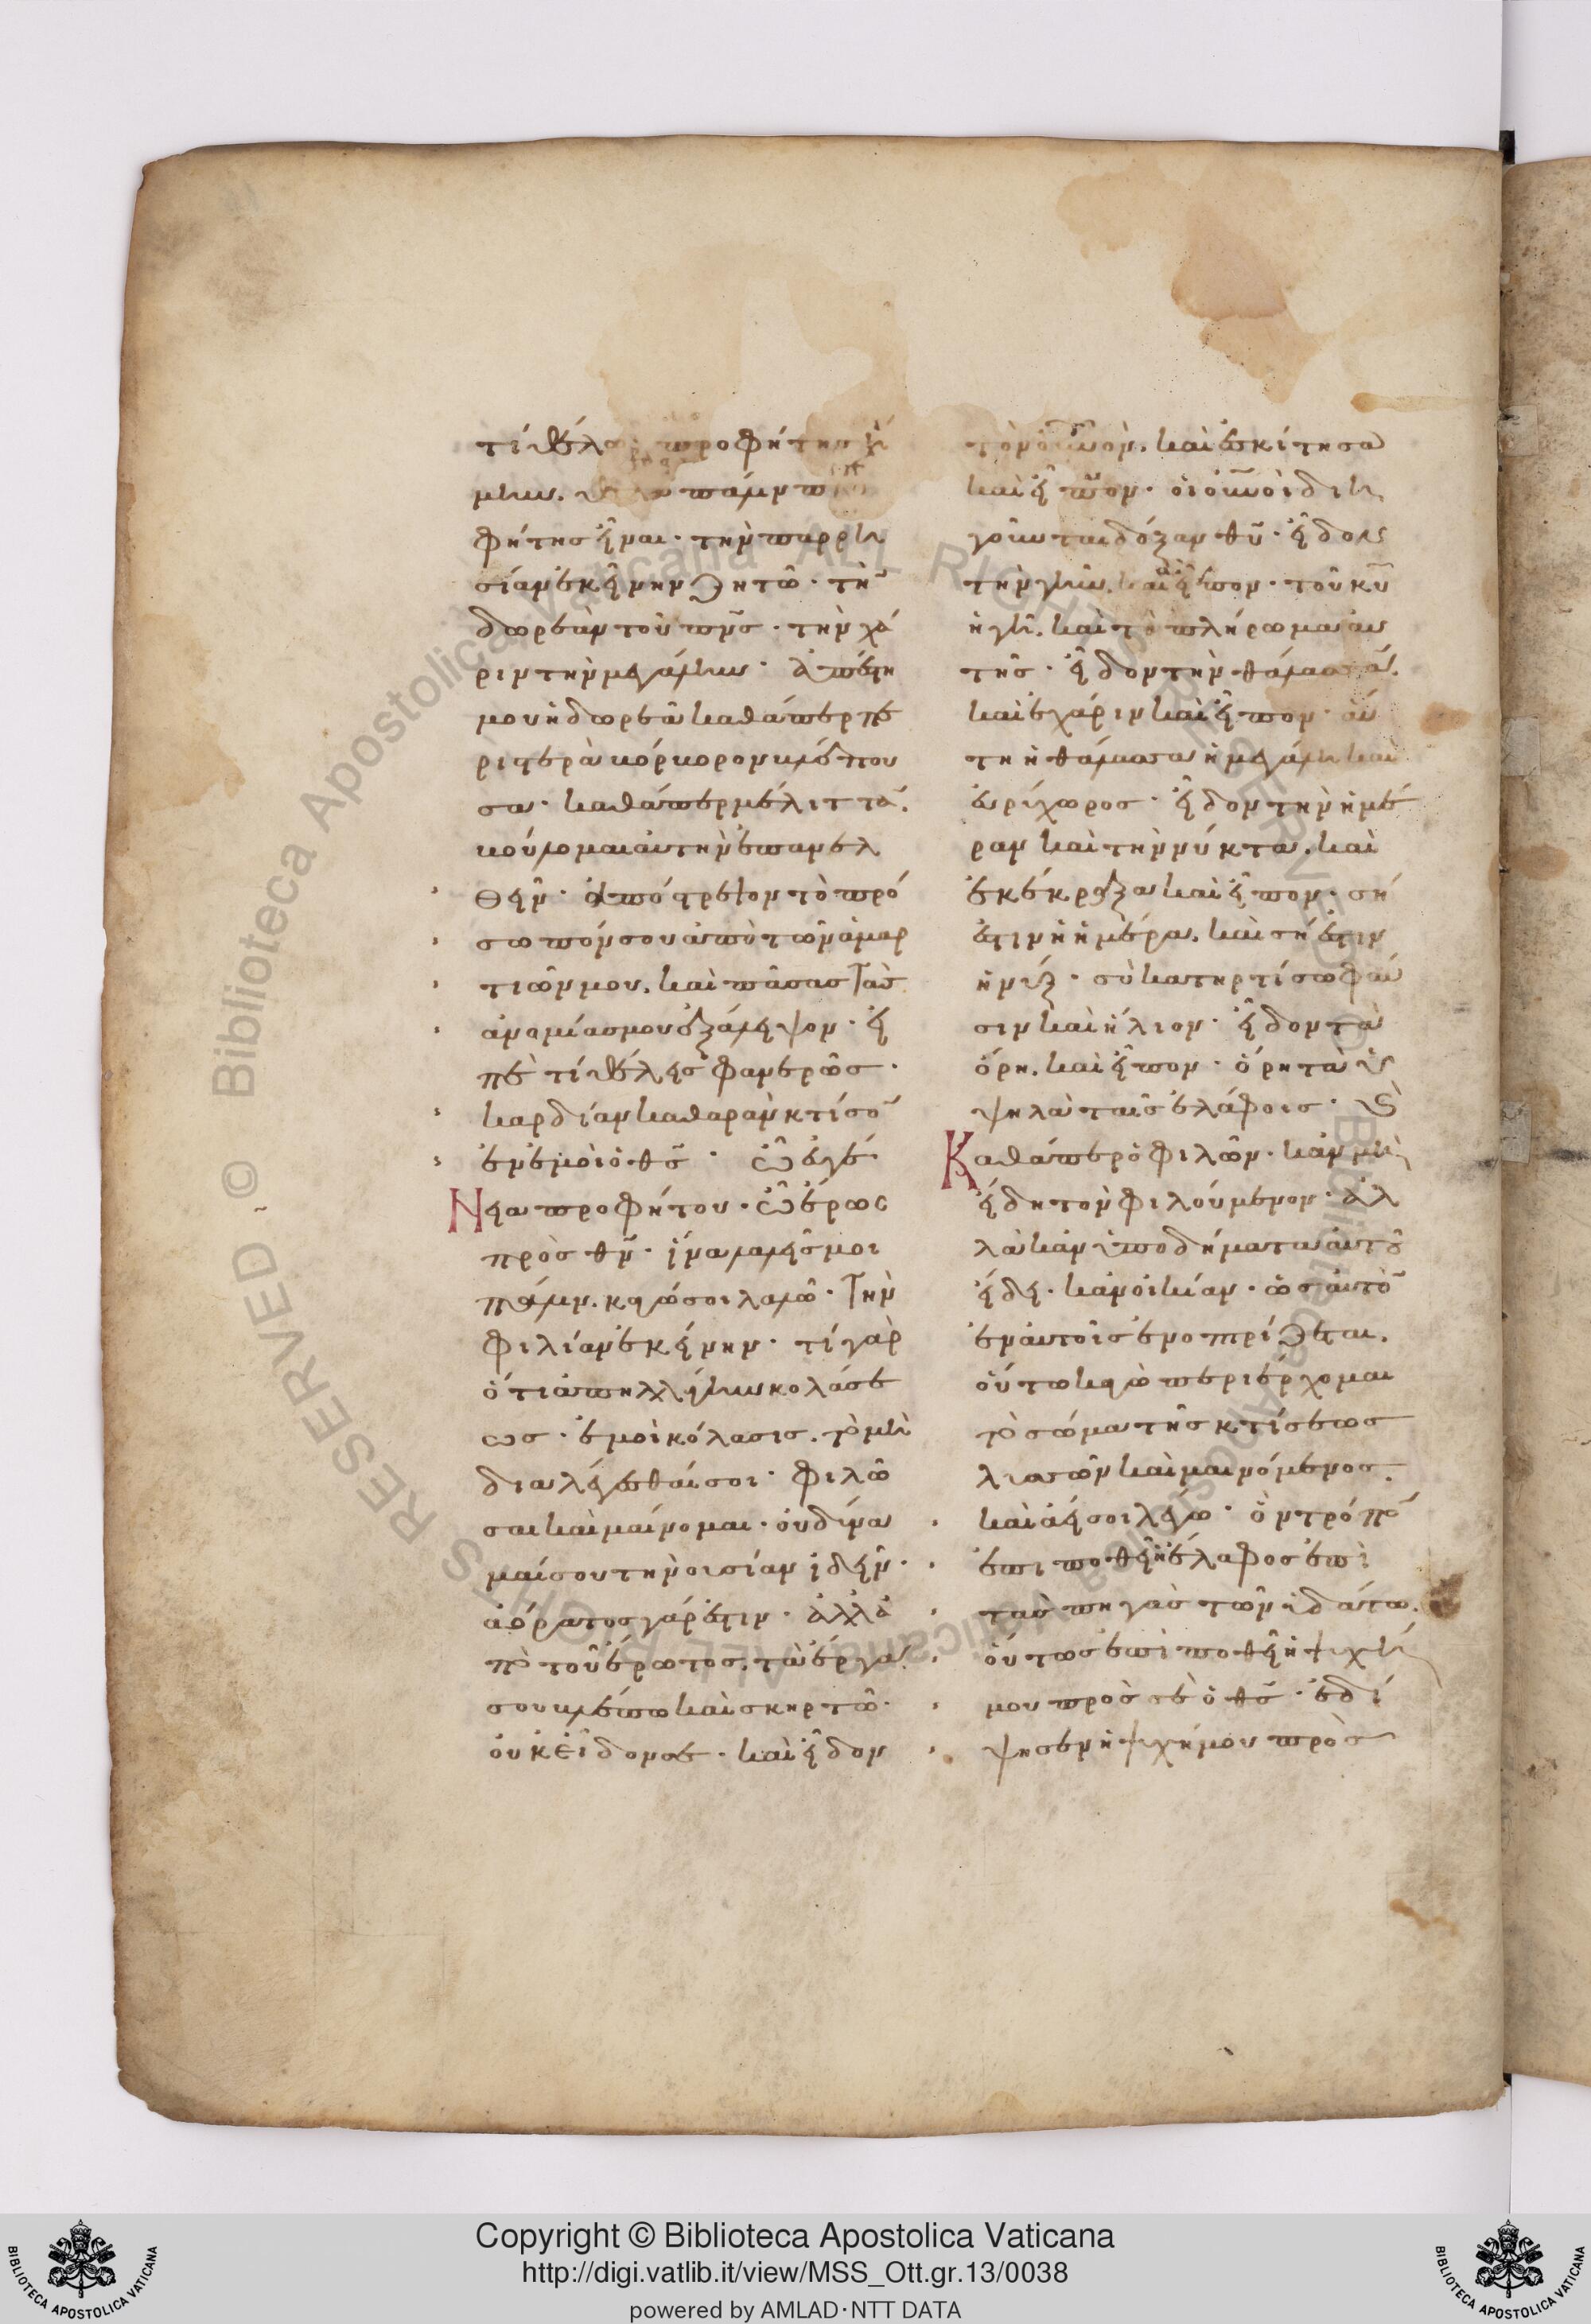 προφήτης ἤ
μην. πάλιν
φήτης εἶναι· τὴν παρρη
σίαν ἐκείνην ζητῶ· τὴν
δωρεὰν τοῦ πνς· τὴν χά
ριν τὴν μεγάλην· ἀπέστη
μου ἡ δωρεὰ καθάπερ πε
ριστερὰ
σα· καθάπερ μέλιττα.
αὐτὴν ἐπανελ
θεῖν· ἀπόστρεψον τὸ πρό
σωπόν σου ἀπὸ τῶν ἁμαρ
τιῶν μου. καὶ πάσας τὰς
ἀνομίας μου ἐξάλειψον· εἰ
πὲ τί θέλεις φανερῶς·
καρδίαν καθαρὰν κτίσον
ἐν ἐμοὶ ὁ θς· ὦ εὐγέ
νεια προφήτου· ὦ ἔρως
πρὸς θν· ἵνα λαλεῖς μοι
πάλιν. κἀγώ σοι λαλῶ· τὴν
φιλίαν ἐκείνην· τί γὰρ
ὅτι ἀπηλλάγην κολάσε
ως· ἐμοὶ κόλασις. τὸ μὴ
διαλέγεσθαί σοι· φιλῶ
σαι καὶ μαίνομαι· οὐ δύνα
μαί σου τὴν οὐσίαν ἰδεῖν·
ἀόρατος γάρ ἐστιν· ἀλλὰ
πὸ τοῦ ἔρωτος. τὰ ἔργα
σου βλέπω καὶ σκηρτῶ·
οὐκ εἶδόν σε· καὶ εἶδον
τὸν οὐνον. καὶ ἐσκίτησα
καὶ εἶπον· οἱ οὐνοὶ διη
γοῦνται δόξαν θυ· εἶδον
τὴν γῆν. καὶ εἶπον· τοῦ κυ
ἡ γῆ. καὶ τὸ πλήρωμα αὐ
τῆς· εἶδον τὴν θάλασσαν.
καὶ ἐχάριν καὶ εἶπον· αὕ
τη ἡ θάλασσα ἡ μεγάλη καὶ
εὐρίχωρος· εἶδον τὴν ἡμέ
ραν καὶ τὴν νύκτα. καὶ
ἐκέκραξα καὶ εἶπον· σή
ἐστιν ἡ ἡμέρα. καὶ σή ἐστιν
ἡ νύξ· σὺ κατηρτίσω φαῦ
σιν καὶ ἥλιον· εἶδον τὰ
ὄρη. καὶ εἶπον· ὄρη τὰ ὑ
ψηλὰ ταῖς ἐλάφοις·
Καθάπερ ὁ φιλῶν· κἂν μὴ
εἴδη τὸν φιλούμενον· ἀλ
λὰ κἂν ὑποδήματα αὐτοῦ
εἴδει· κἂν οἰκίαν· ὡς αὐτὸν
ἐν αὐτοῖς ἐνοπρίζεται.
οὕτω κἀγὼ περιέρχομαι
τὸ σῶμα τῆς κτίσεως
λυσσῶν καὶ μαινόμενος.
καὶ ἀεί σοι λέγω· ὃν τρόπον
ἐπιποθεῖ ἡ ἔλαφος ἐπὶ
τὰς πηγὰς τῶν ὑδάτων.
οὕτως ἐπιποθεῖ ἡ ψυχή
μου πρὸς σὲ ὁ θς· ἐδί
ψησεν ἡ ψυχή μου πρὸς
Copyright © Biblioteca Apostolica Vaticana
http://digi.vatlib.it/view/MSS_Ott.gr.13/0038
powered by AMLAD·NTT DATA
BIBLIOTECA APOSTOLICA VATICANA
BIBLIOTECA APOSTOLICA VATICANA